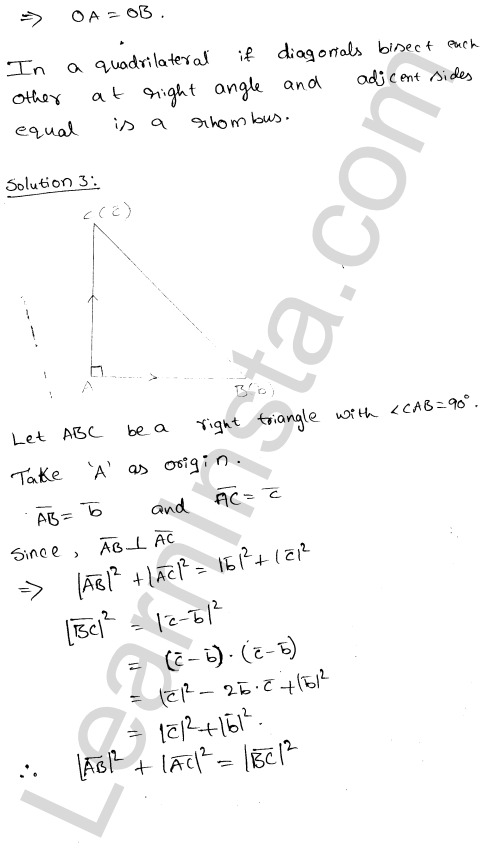 ⇒ OA = OB.
In a quadrilateral if diagonals bisect each
other at right angle and adjcent sides
equal is a rhombus.
Solution 3:
C(c̄)
A
B(b̄)
Let ABC be a right triangle with ∠CAB=90°.
Take 'A' as origin.
A̅B̅ = b̄ and A̅C̅ = c̄
Since, A̅B̅ ⊥ A̅C̅
⇒ |A̅B̅|² + |A̅C̅|² = |b̄|² + |c̄|²
|B̅C̅|² = |c̄-b̄|²
= (c̄-b̄)·(c̄-b̄)
= |c̄|² - 2b̄·c̄ + |b̄|²
= |c̄|² + |b̄|².
∴ |A̅B̅|² + |A̅C̅|² = |B̅C̅|²
LearnInsta.com